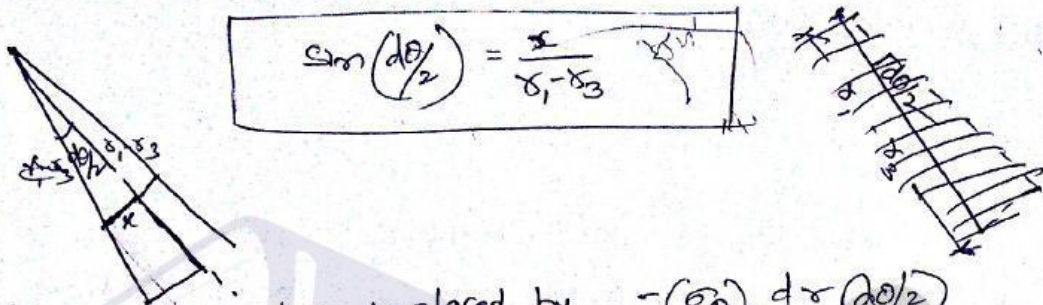 sin(dθ/2) = x / (r₁ - r₃)
dθ/2 r₁ - r₃
x
dθ/2
r₁
r₃
replaced by -(σθ) dr (dθ/2)